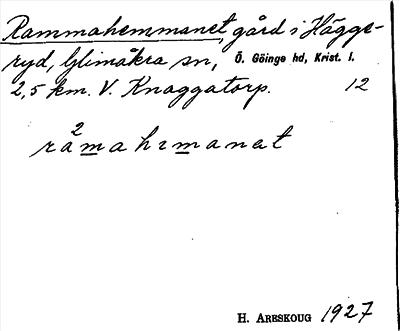 Rammahemmanet, gård i Hägge-
ryd, Glimåkra sn, Ö. Göinge hd, Krist. l.
2,5 km. V. Knaggatorp. 12
2
ramahemanet
H. ARESKOUG 1927